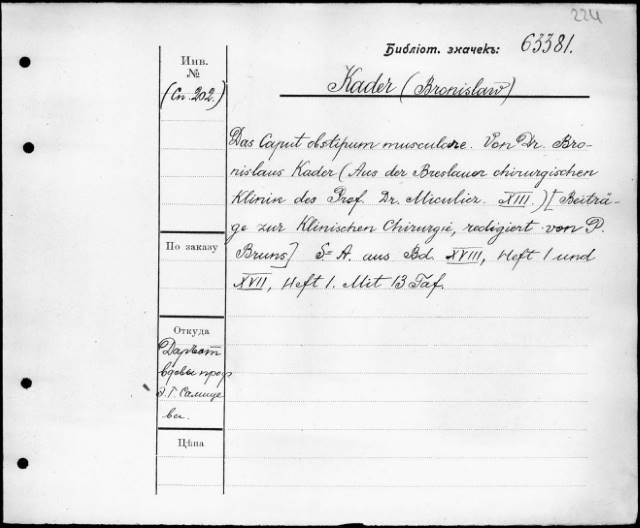 224
Библіот. значекъ: 63381.
Инв.
№
(Сп. 202.)
Kader (Bronislaw)
Das Caput obstipum musculare. Von Dr. Bro-
nislaus Kader (Aus der Breslauer chirurgischen
Klinin des Prof. Dr. Miculicr. XIII.) [Beiträ-
ge zur Klinischen Chirurgie, redigiert von P.
Bruns] S. A. aus Bd. XVIII, Heft 1 und
XVII, Heft 1. Mit 13 Taf.
По заказу
Откуда
Даръ от
вдовы проф
Э. Г. Салище
ва.
Цѣна